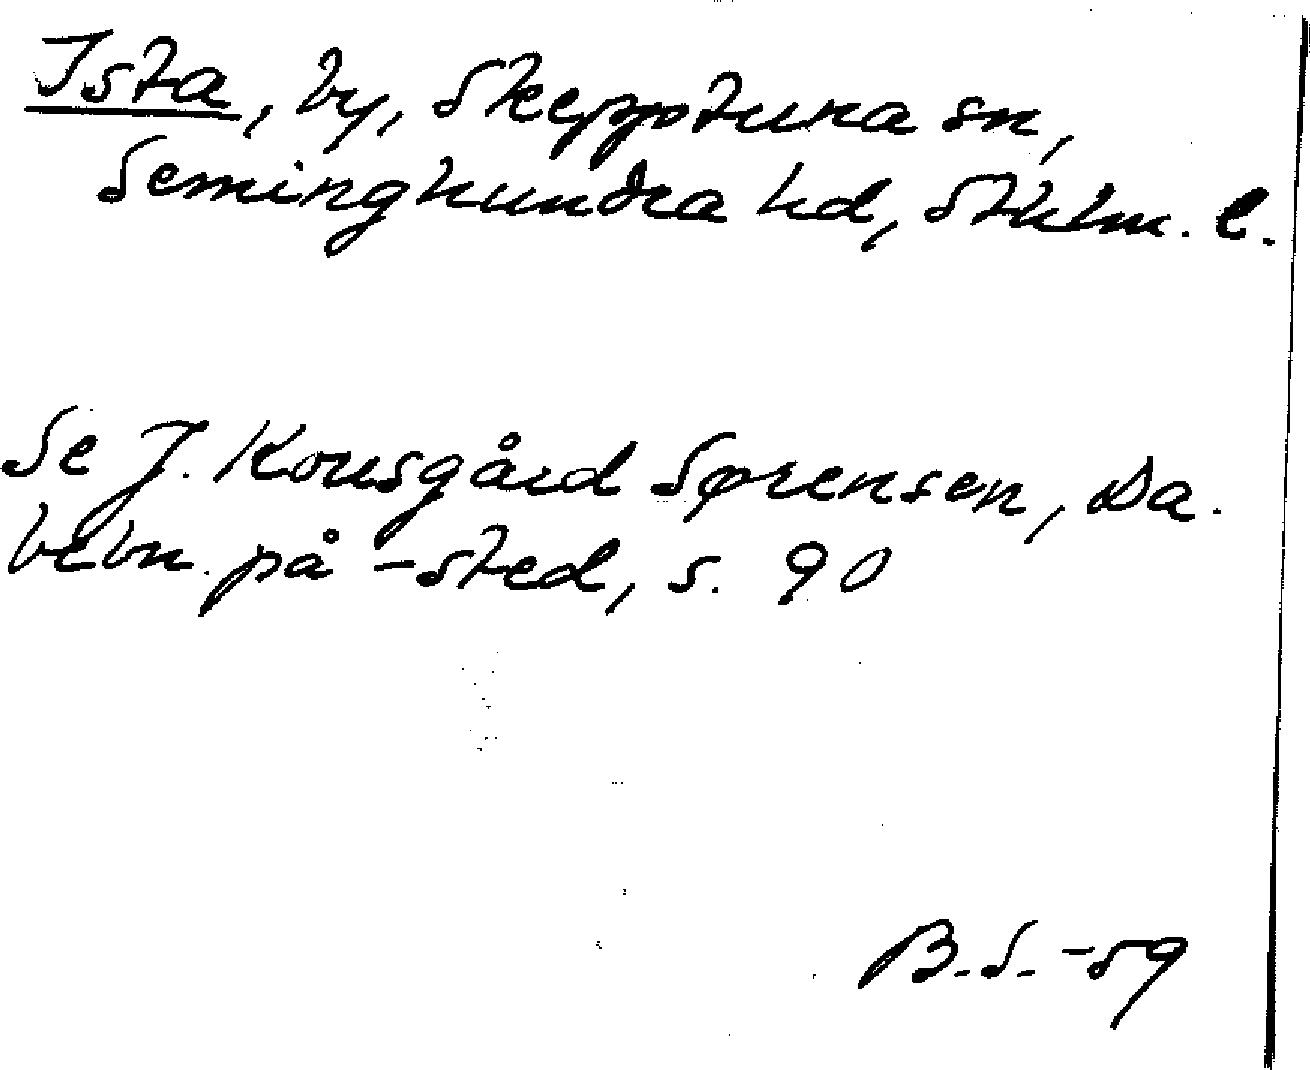 Ista, by, Skepptuna sn,
Seminghundra hd, Sthlm. l.
Se J. Kousgård Sørensen, Da.
bebn. på -sted, s. 90
B.S. -59